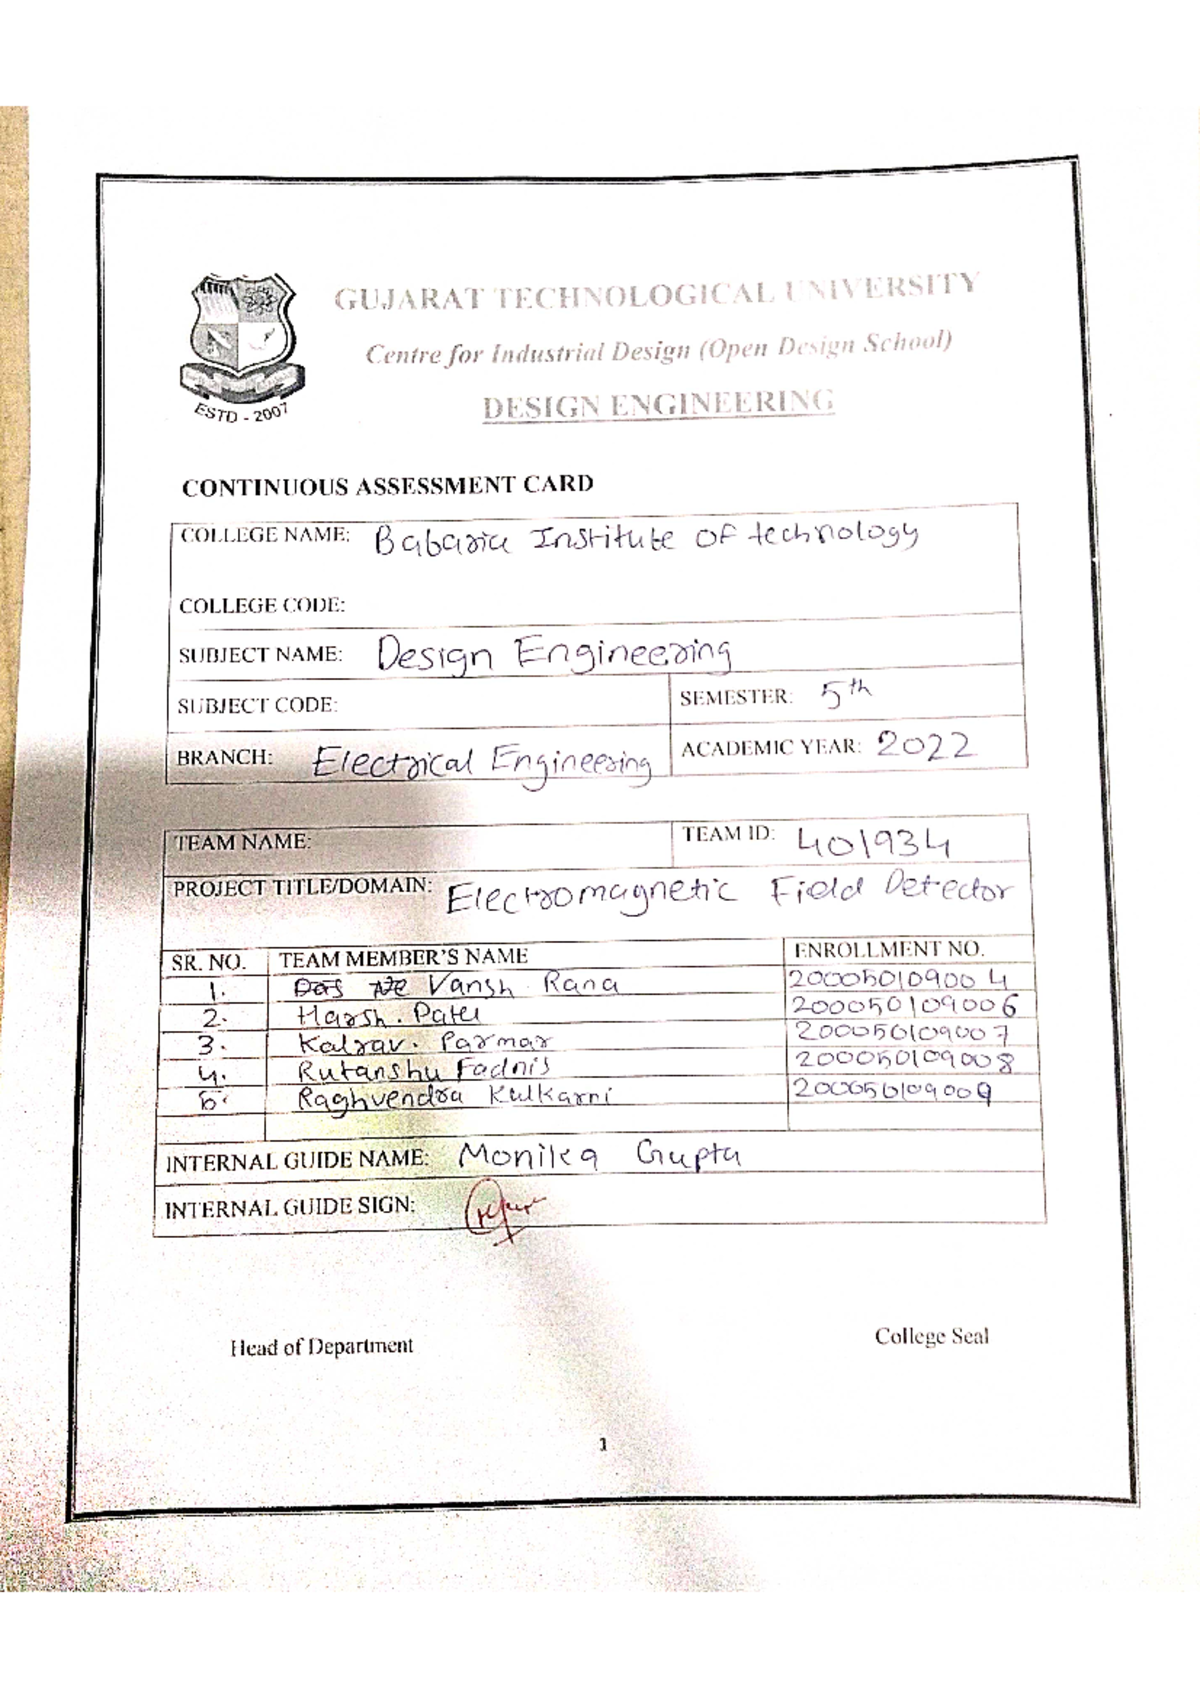 GUJARAT TECHNOLOGICAL UNIVERSITY
Centre for Industrial Design (Open Design School)
DESIGN ENGINEERING
ESTD - 2007
CONTINUOUS ASSESSMENT CARD
COLLEGE NAME: Babaria Institute of technology
COLLEGE CODE:
SUBJECT NAME: Design Engineering
SUBJECT CODE: SEMESTER: 5th
BRANCH: Electrical Engineering ACADEMIC YEAR: 2022
TEAM NAME: TEAM ID: 401934
PROJECT TITLE/DOMAIN: Electromagnetic Field Detector
SR. NO. TEAM MEMBER'S NAME ENROLLMENT NO.
1. Vansh. Rana 200050109004
2. Harsh. Patel 200050109006
3. Kalrav. Parmar 200050109007
4. Rutanshu Fadnis 200050109008
5. Raghvendra Kulkarni 200050109009
INTERNAL GUIDE NAME: Monika Gupta
INTERNAL GUIDE SIGN:
Head of Department College Seal
1